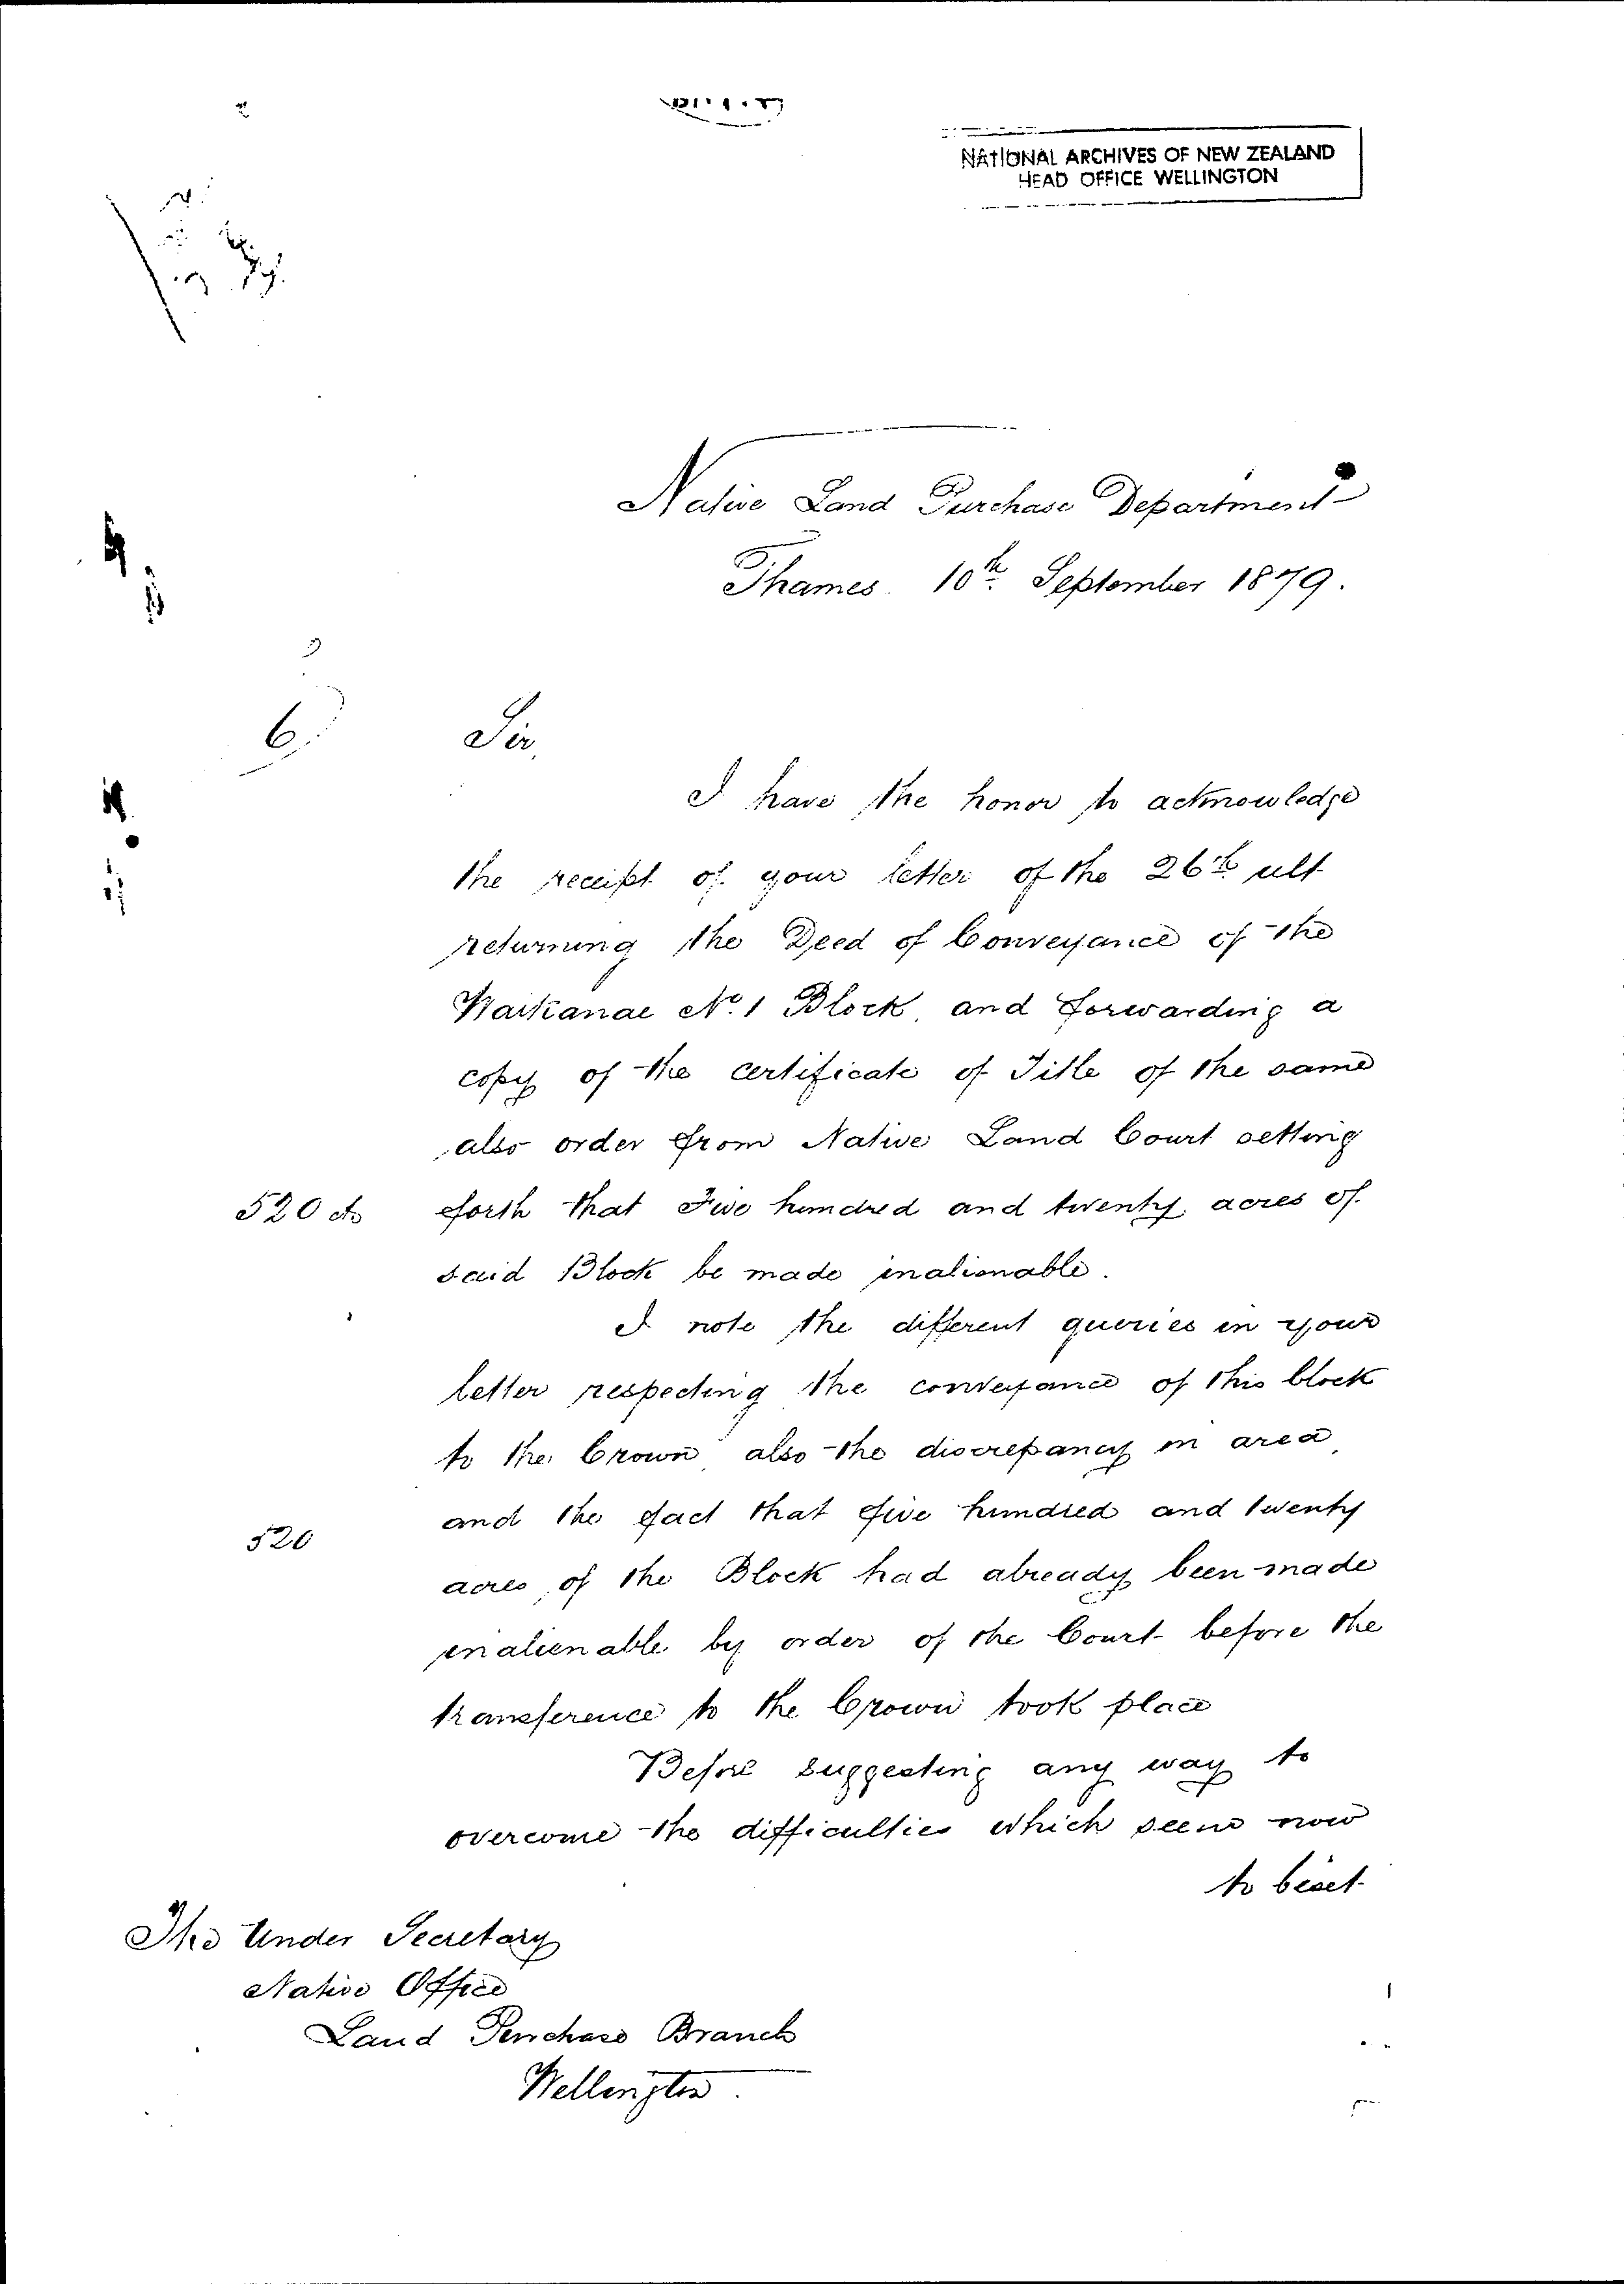 NATIONAL ARCHIVES OF NEW ZEALAND
HEAD OFFICE WELLINGTON
Native Land Purchase Department
Thames. 10th September 1879.
6.
Sir,
I have the honor to acknowledge
the receipt of your letter of the 26th ult
returning the Deed of Conveyance of the
Waikanae No. 1 Block, and forwarding a
copy of the certificate of Title of the same
also order from Native Land Court setting
520 ac forth that Five hundred and twenty acres of
said Block be made inalienable.
I note the different queries in your
letter respecting the conveyance of this block
to the Crown, also the discrepancy in area,
and the fact that five hundred and twenty
520
acres of the Block had already been made
inalienable by order of the Court before the
transference to the Crown took place
Before suggesting any way to
overcome the difficulties which seem now
to beset
The Under Secretary
Native Office
Land Purchase Branch
Wellington.